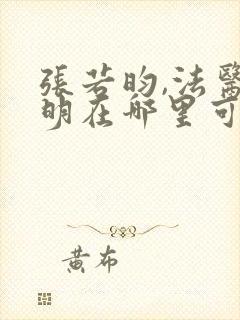 張若昀,法醫
明在哪里可
黃布